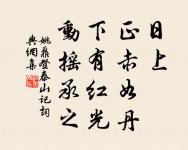 日上
正赤如丹
下有紅光
動搖承之
姚鼐登泰山記詞
典網集